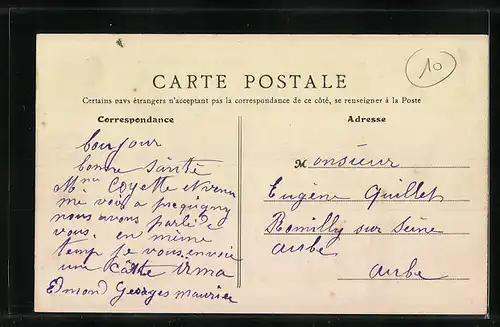 10
CARTE POSTALE
Certains pays étrangers n'acceptant pas la correspondance de ce côté, se renseigner à la Poste
Correspondance
Adresse
bonjour
bonne santé
Mme Coyette et venu
me voir a picquigny
nous avons parlé de
vous. en même
temp je vous envoie
une Catte Irma
Edmond Georges Maurice
Monsieur
Eugène Quillet
Romilly sur Seine
aube
aube